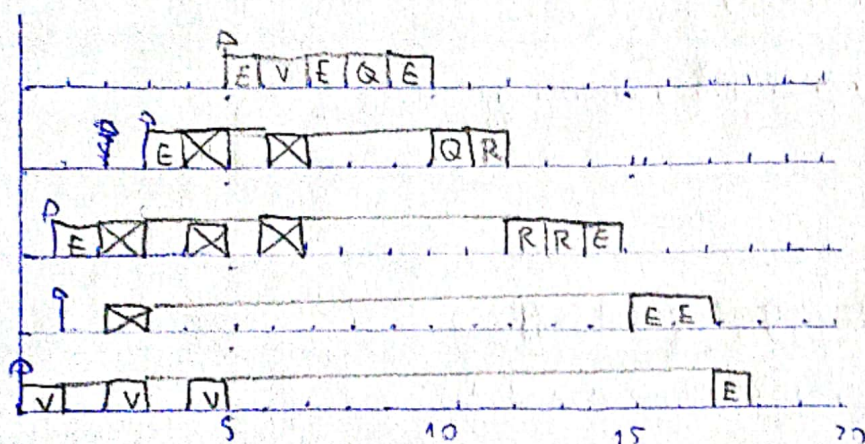 E V E Q E
E Q R
E R R E
E E
V V V E
5 10 15 20